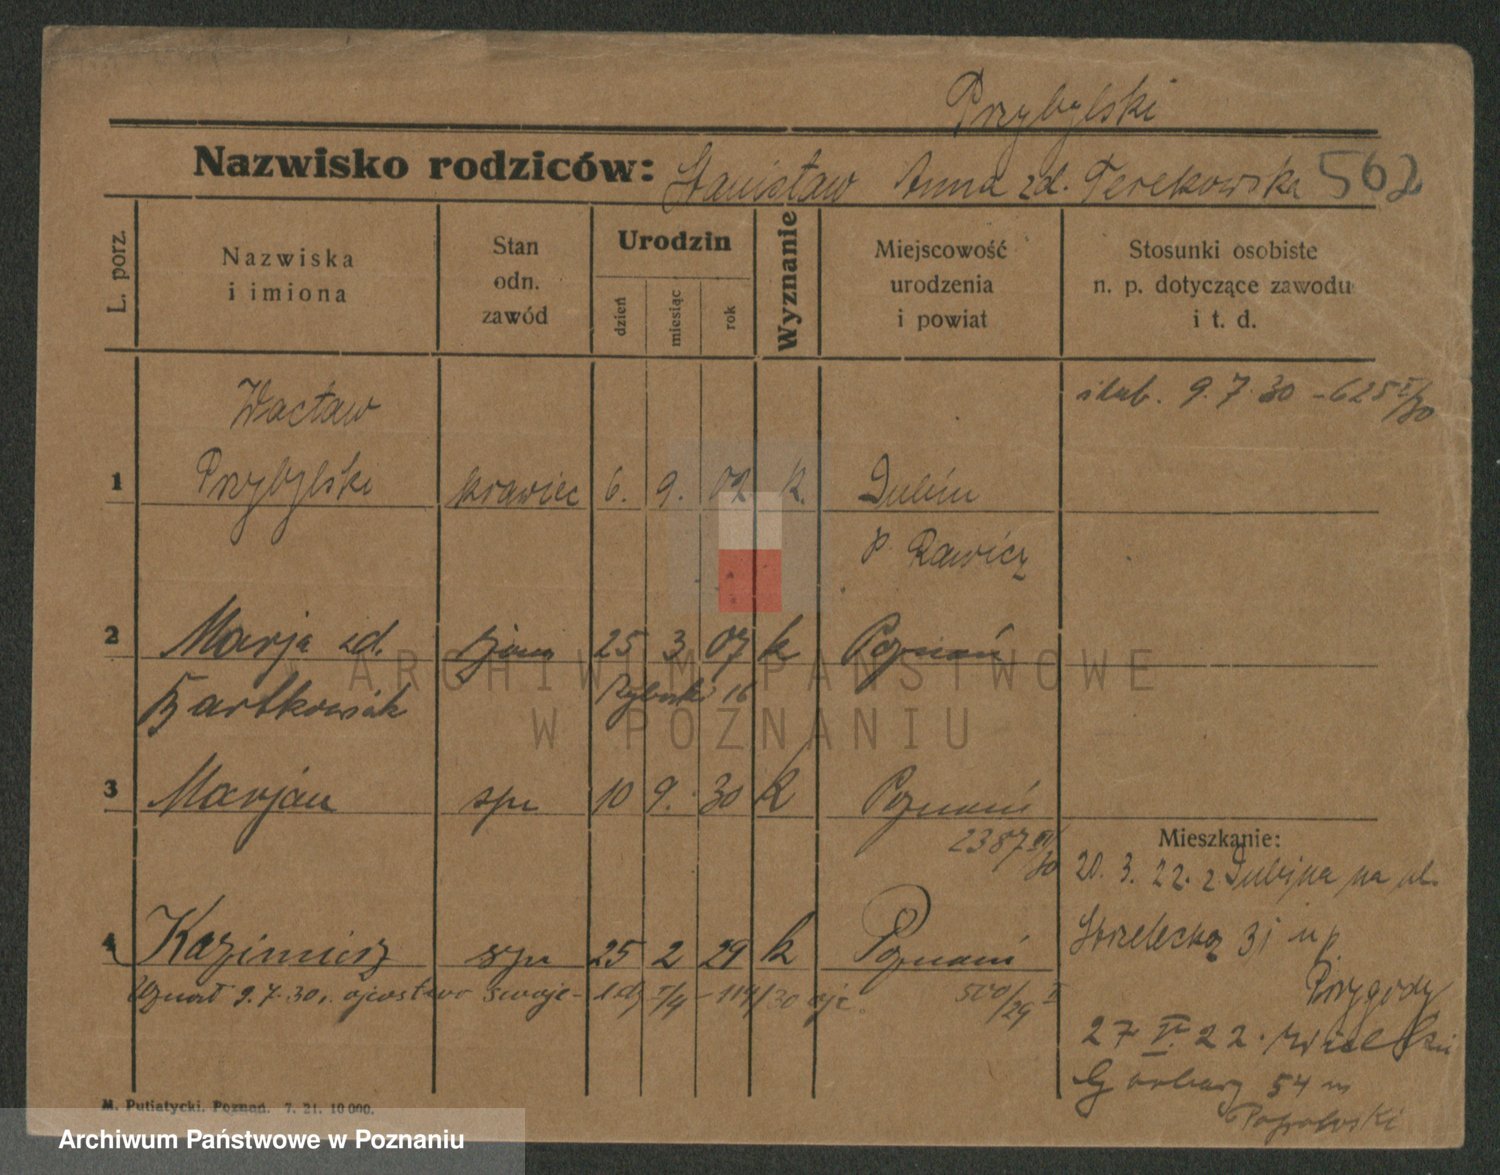 Przybylski
Nazwisko rodziców: Stanisław Anna zd. Terekowska 562
L. porz.
Nazwiska
i imiona
Stan
odn.
zawód
Urodzin
dzień
miesiąc
rok
Wyznanie
Miejscowość
urodzenia
i powiat
Stosunki osobiste
n. p. dotyczące zawodu
i t. d.
Wacław
ślub. 9.7.30 - 625
1 Przybylski krawiec 6. 9. 02 k. Dubin
p Rawicz
2 Marja zd. żona 25 3 07 k Poznań
Bartkowiak 16
3 Marjan syn 10 9. 30 k Poznań
2387
Mieszkanie:
20. 3. 22. z Dubina na ul.
4 Kazimierz syn 25 2 29 k Poznań
Strzelecką 31 u p
Uznał 9.7.30. ojcostwo swoje 500/29 I
Przygody
27 V. 22.
Garbary 54 m
M. Putiatycki, Poznań. 7. 21. 10 000.
ARCHIWUM PAŃSTWOWE
W POZNANIU
Archiwum Państwowe w Poznaniu